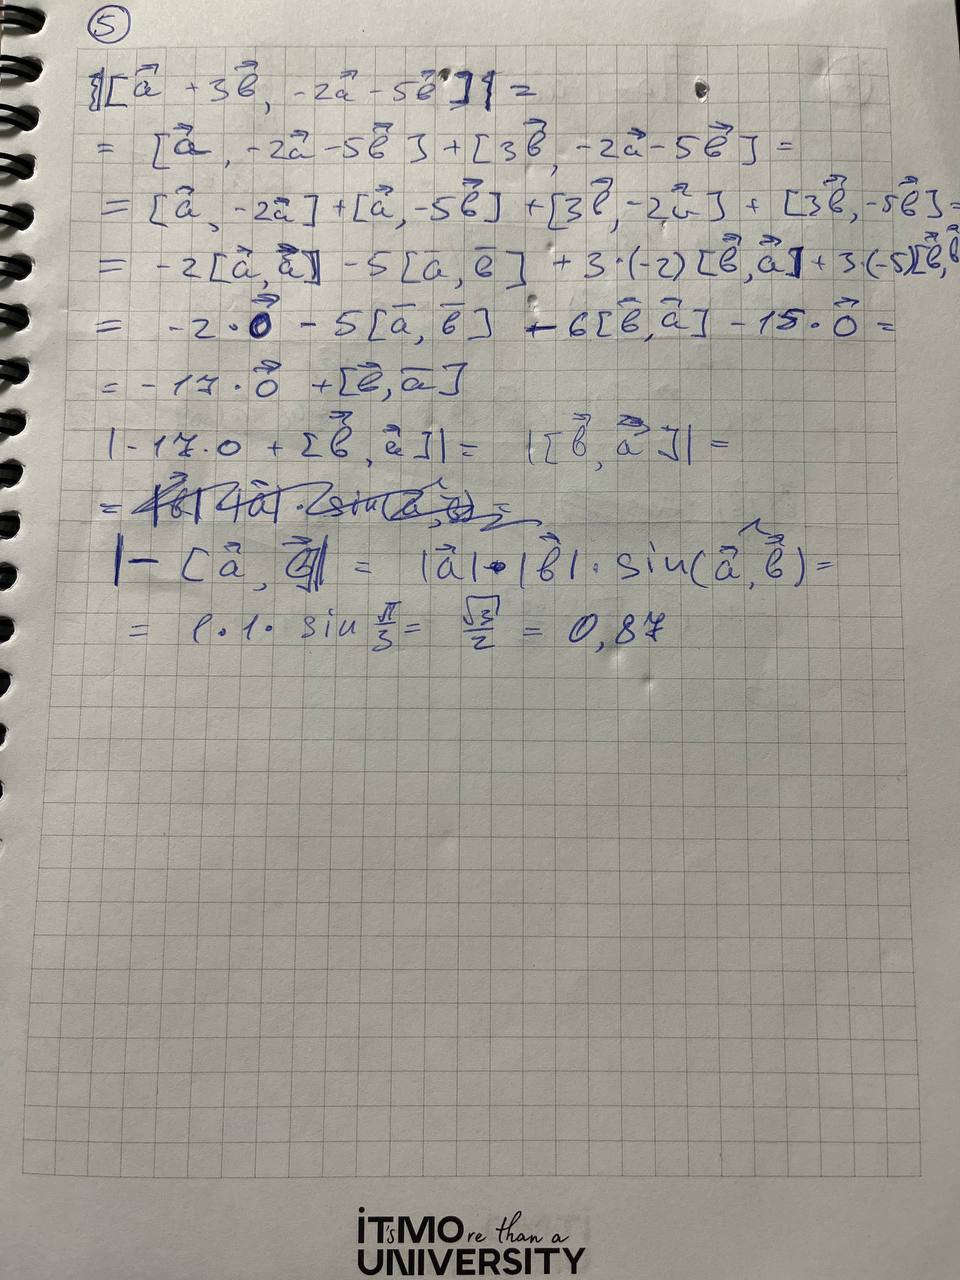 5
|[a⃗ + 3b⃗, -2a⃗ - 5b⃗]| =
= [a⃗, -2a⃗ - 5b⃗] + [3b⃗, -2a⃗ - 5b⃗] =
= [a⃗, -2a⃗] + [a⃗, -5b⃗] + [3b⃗, -2a⃗] + [3b⃗, -5b⃗] =
= -2[a⃗, a⃗] - 5[a̅, b̅] + 3·(-2)[b⃗, a⃗] + 3·(-5)[b⃗, b⃗
= -2·0⃗ - 5[a̅, b̅] - 6[b̅, a̅] - 15·0⃗ =
= -17·0⃗ + [b⃗, a̅]
|-17·0 + [b⃗, a⃗]| = |[b⃗, a⃗]| =
=
|-[a⃗, b⃗]| = |a⃗|·|b⃗|·sin(a⃗,^b⃗) =
= 1·1·sin π/3 = √3/2 = 0,87
it's MOre than a
UNIVERSITY